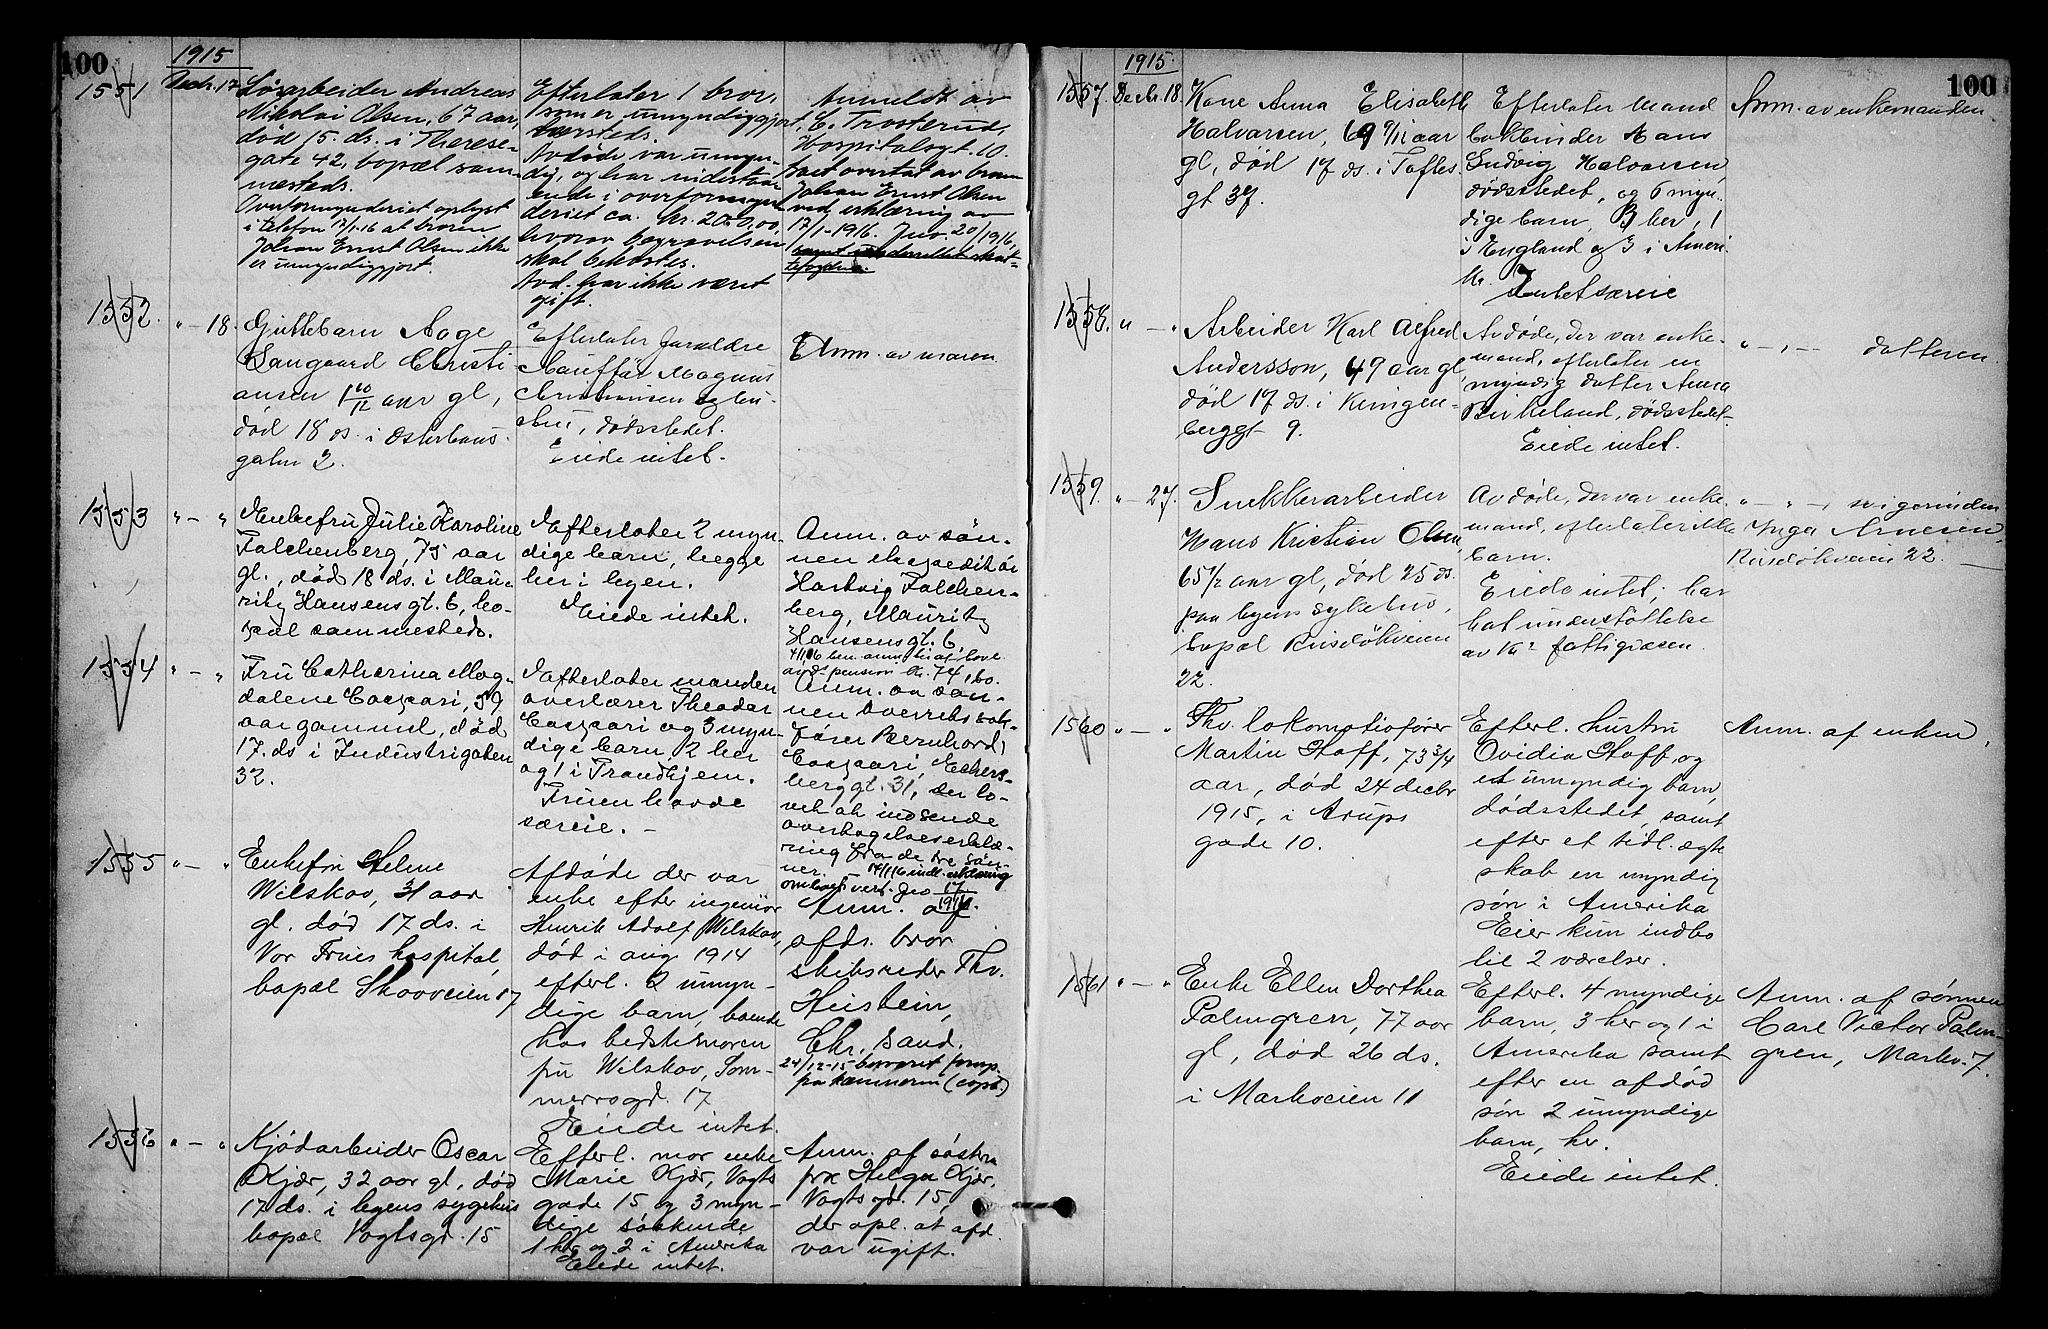 100
1915
1551
Decbr. 17
Løsarbeider Andreas
Nikolai Olsen, 67 aar,
død 15. ds. i Therese-
gate 42, bopæl sam-
mesteds.
Overformynderiet oplyst
i telefon 17/1-16 at broren
Johan Ernst Olsen ikke
er umyndiggjort.
Efterlater 1 bror,
som er umyndiggjort,
Avdøde var umyn-
dig, og har indestaa-
ende i overformyn-
deriet ca. kr. 200,00,
hvorav begravelsen
skal bekostes.
Avd. har ikke været
gift.
Anmeldt av
C. Trosterud,
Hospitalsgt. 10.
Boet overtat av broren
Johan Ernst Olsen
ved erklæring av
17/1-1916. Jno. 20/1916,
samt underrettet skat-
tefogden.
1552.
" - 18.
Guttebarn Aage
Langaard Christi-
ansen 1 10/12 aar gl,
død 18 ds. i Osterhaus-
gaten 2.
Efterlater forældre
Magnus
Christiansen og hu-
stru, dødsstedet.
Eiede intet.
Anm. av moren
1553
" - "
Enkefru Julie Karoline
Falchenberg, 75 aar
gl., død 18 ds. i Mau-
ritz Hansens gt. 6, bo-
pæl sammesteds.
Efterlater 2 myn-
dige barn, begge
her i byen.
Eiede intet.
Anm. av søn-
nen ekspeditør
Hartvig Falchen-
berg, Mauritz
Hansens gt. 6,
pension kr. 74,60.
1554
" - "
Fru Catharina Mag-
dalene Caspari, 59
aar gammel, død
17. ds i Industrigaten
32.
Efterlater manden
overlærer Theodor
Caspari og 3 myn-
dige barn, 2 her
og 1 i Trondhjem.
Fruen havde
særeie. -
Anm. av søn-
nen overretssak-
fører Bernhard
Caspari, Eckers-
berggt. 31, der lo-
vet at indsende
overtagelseserklæ-
ring fra de tre søn-
ner. - 14/1 16 indl. erklæring
om boets overt. Jno 17/1916.
1555
" - "
Enkefru Helene
Wilskov, 31 aar
gl. død 17 ds. i
Vor Frues hospital,
bopæl Skovveien 17
Afdøde der var
enke efter ingeniør
Henrik Adolf Wilskov,
død i aug 1914
efterl. 2 umyn-
dige barn, boende
hos bedstemoren
fru Wilskov, Som-
merrogd. 17
Eiede intet.
Anm. af
afds. bror
skibsreder Thv.
Heistein,
Chr. sand.
24/12-15 besvaret foresp.
fra kæmneren (copi)
1556
" - "
Kjødarbeider Oscar
Kjær, 32 aar gl, død
17 ds. i byens sygehus
bopæl Vogtsgd. 15
Efterl. mor enke
Marie Kjær, Vogts
gade 15 og 3 myn-
dige søskende
1 her og 2 i Amerika
Eiede intet.
Anm. af søsteren
frk Helga Kjær,
Vogts gd. 15,
der opl. at afd.
var ugift.
100
1915.
1557.
Decbr. 18.
Kone Anna Elisabeth
Halvarsen, 69 9/11 aar
gl, død 17 ds. i Toftes
gt 37.
Efterlater mand
bokbinder Hans
Ludvig Halvarsen,
dødsstedet, og 6 myn-
dige barn, her, 1
i England og 3 i Ameri-
ka.
Intet særeie
Anm. av enkemanden.
1558.
" - "
Arbeider Karl Alfred
Andersson, 49 aar gl,
død 17 ds. i Kongens-
berggt 9.
Avdøde, der var enke-
mand, efterlater en
myndig datter Anna
Birkeland, dødsstedet.
Eiede intet.
" - " - datteren.
1559.
" - 27.
Snekkerarbeider
Hans Kristian Olsen
65 1/2 aar gl, død 25 ds.
paa byens sykehus,
bopæl Ruseløkveien
22.
Avdøde, der var enke-
mand, efterlater ikke
barn.
Eiede intet; har
hat understøttelse
av Kra fattigvæsen.
" - " - svigerinden
Inga Arnesen,
Ruseløkveien 22. -
1560
" - "
Fhv. lokomotivfører
Martin Hoff, 73 3/4
aar, død 24 decbr
1915, i Arups
gade 10.
Efterl. hustru
Ovidia Hoff, og
et umyndig barn,
dødsstedet, samt
efter et tidl. ægte
skab en myndig
søn i Amerika
Eier kun indbo
til 2 værelser.
Anm. af enken.
1561
" - "
Enke Ellen Dorthea
Palmgren, 77 aar
gl, død 26 ds.
i Markveien 11
Efterl. 4 myndige
barn, 3 her og 1 i
Amerika samt
efter en afdød
søn 2 umyndige
barn, her.
Eiede intet.
Anm. af sønnen
Carl Victor Palm-
gren, Markv. 7.